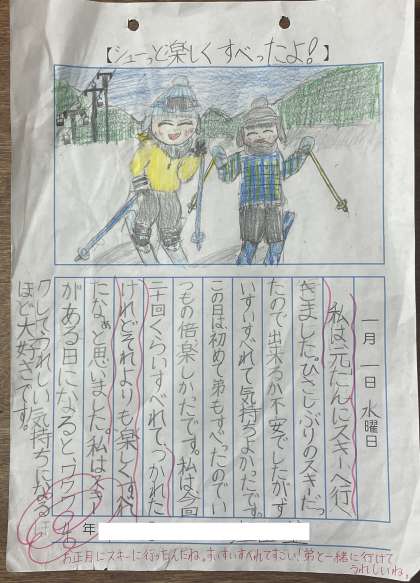 【シューっと楽しくすべったよ！】
一月一日水曜日
私は元たんにスキーへ行
きました。ひさしぶりのスキーだっ
たので出来るか不安でしたがす
いすいすべれて気持ちよかったです。
この日は初めて弟もすべったのでい
つもの倍楽しかたです。私は、今回
二十回くらいすべれてつかれた
けれどそれよりも楽しくすべれ
になぁと思いました。私はスキー
がある日になると、ワクワクル
クしてうれしい気持ちになるほ
ほど大好きです。
年
お正月にスキーに行ったんだね。すいすいすべれてすごい！弟と一緒に行けて
うれしいね。